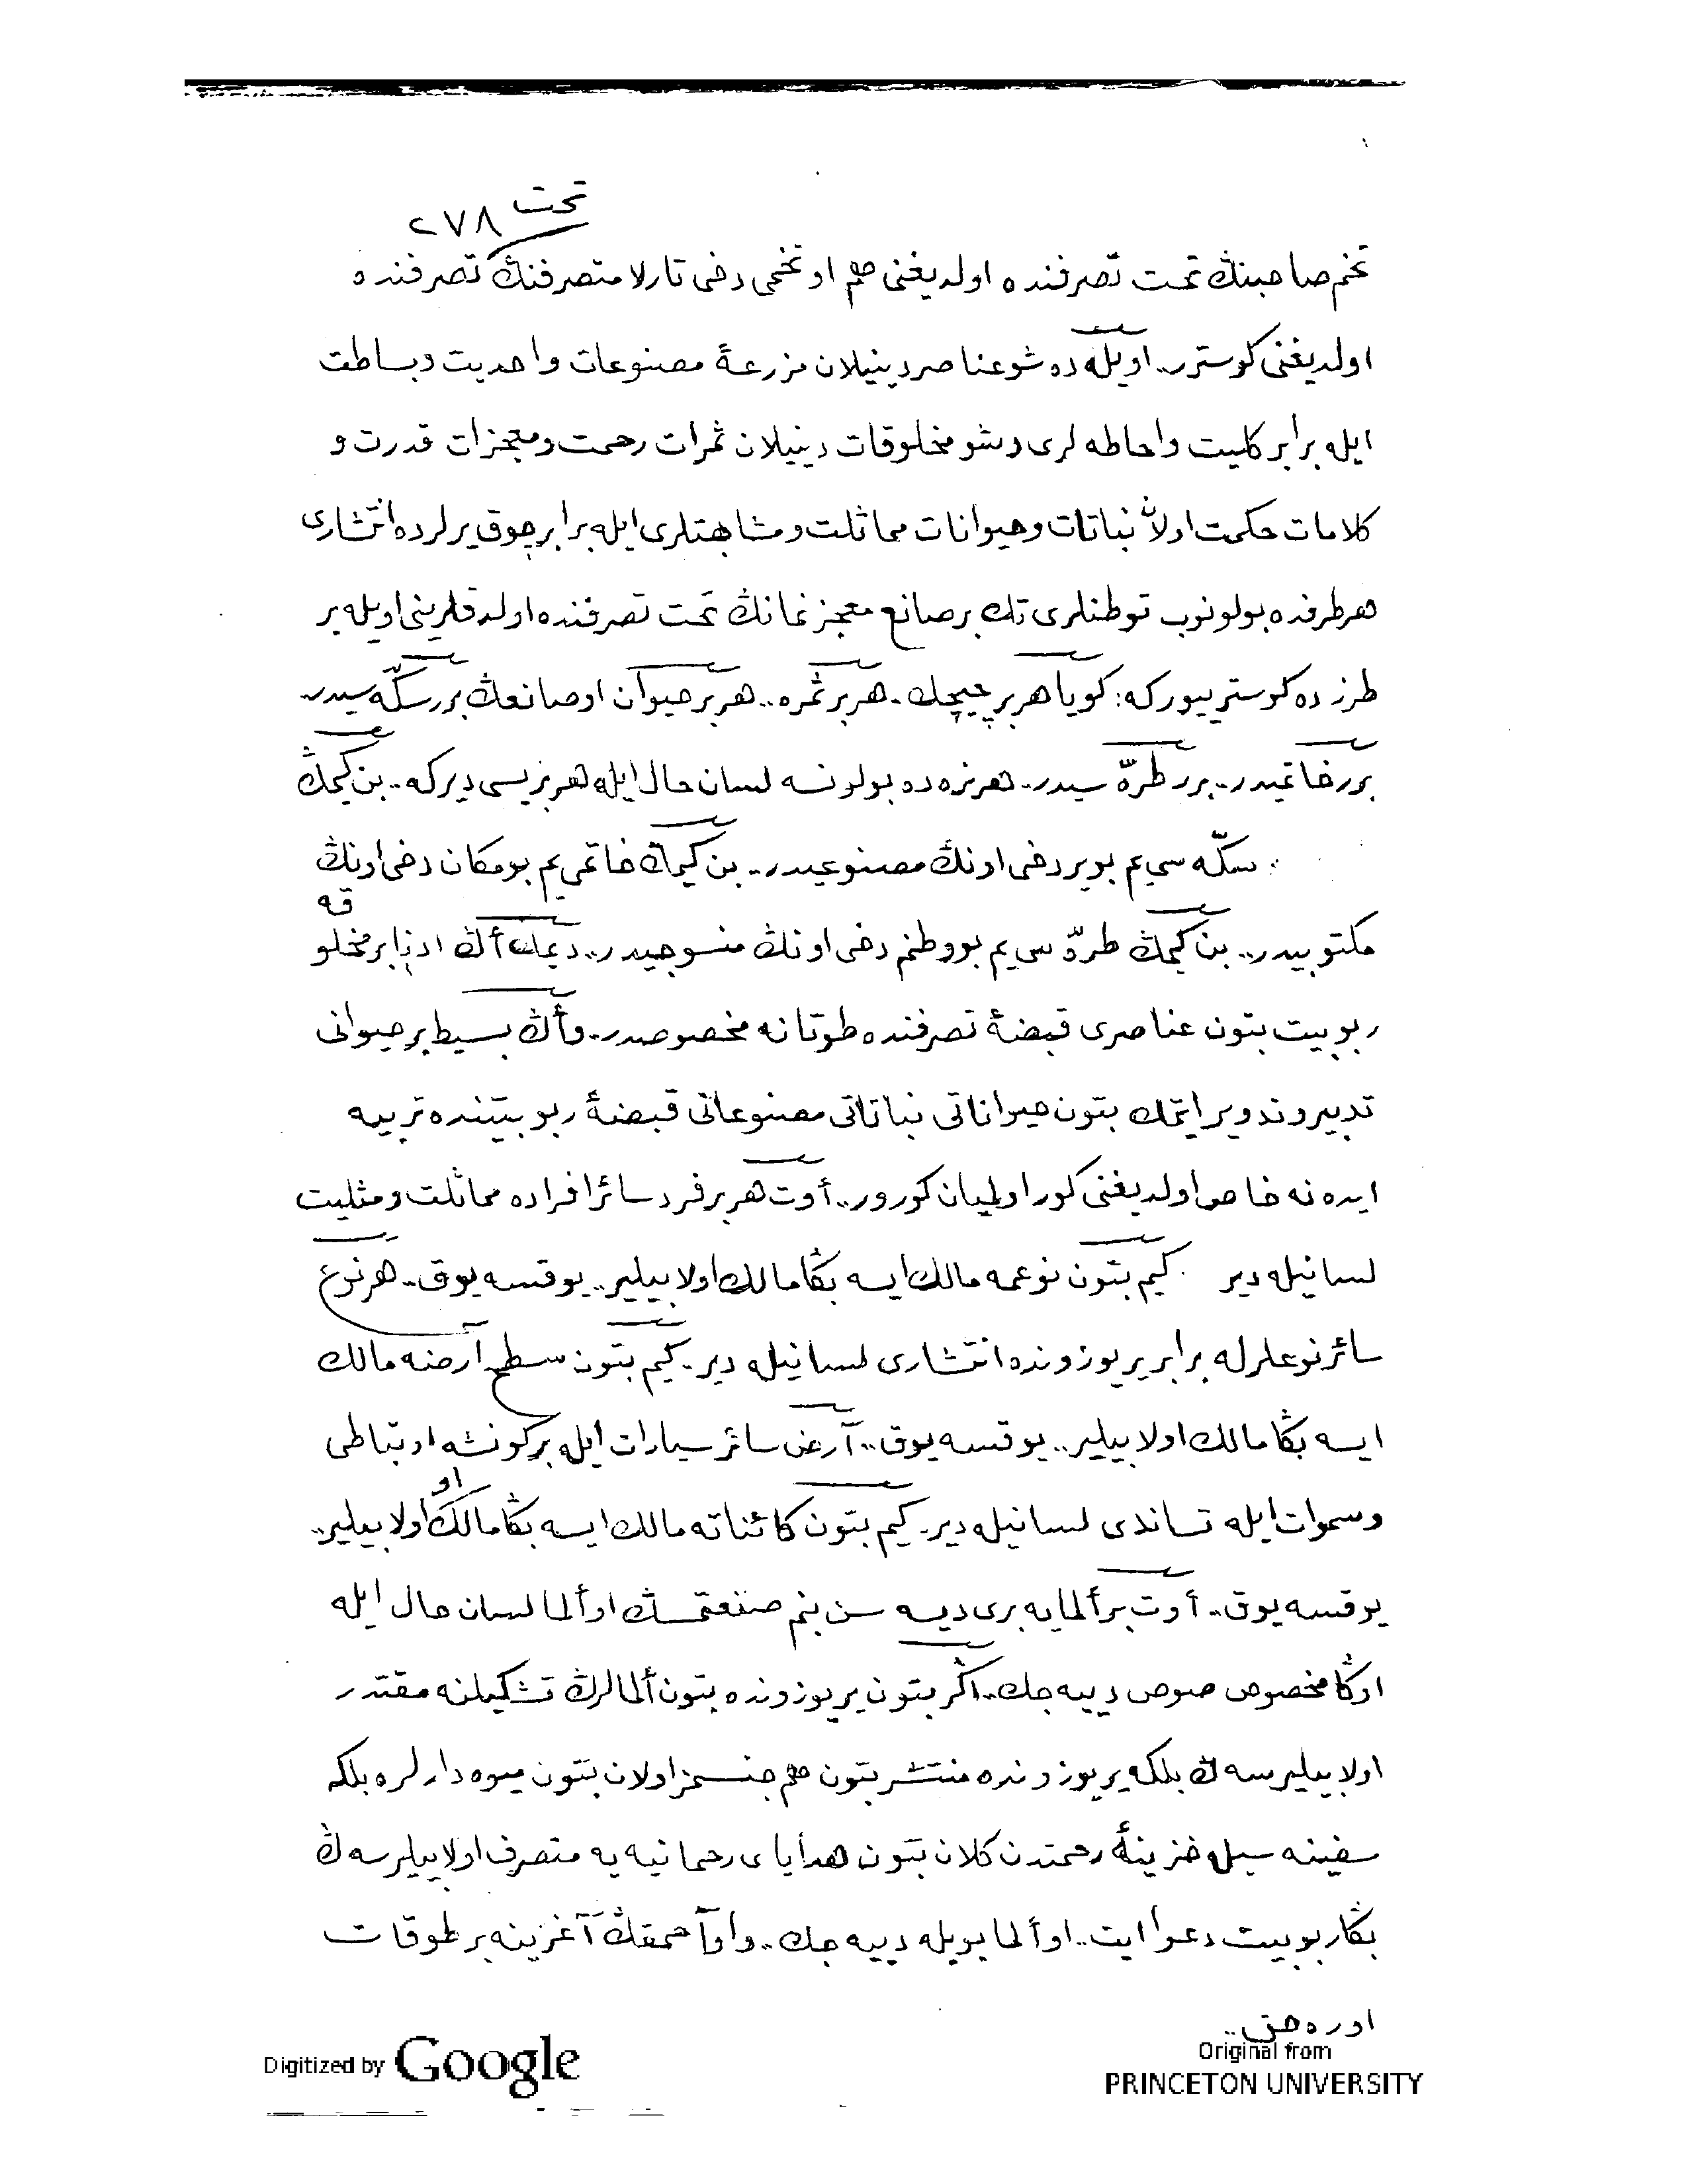 تحت
٢٧٨
تخم صاحبنڭ تحت تصرفنده اولديغنى هم او تخمى دخى تارلا متصرفنڭ تصرفنده
اولديغنى كوسترر.. اويله ده شو عناصر دينيلان مزرعهٔ مصنوعات واحديت وبساطت
ايله برابر كليت واحاطه لرى وشو مخلوقات دينيلان ثمرات رحمت ومعجزات قدرت و
كلامات حكمت اولان نباتات وحيوانات مماثلت ومشابهتلرى ايله برابر چوق يرلرده انتشارى
هر طرفده بولونوب توطنلرى تك بر صانع معجزنمانڭ تحت تصرفنده اولدقلرينى اويله بر
طرزده كوسترييور كه: كويا هر بر چيچك.. هر بر ثمره.. هر بر حيوان او صانعڭ برر سكّه سيدر..
برر خاتميدر.. برر طرّه سيدر.. هر نره ده بولونسه لسان حال ايله هر بريسى ديركه.. بن كيمڭ
سكّه سى يم بو ير دخى اونڭ مصنوعيدر.. بن كيمڭ خاتمى يم بو مكان دخى اونڭ
مكتوبيدر.. بن كيمڭ طرّه سى يم بو وطنم دخى اونڭ منسوجيدر.. ديمك أڭ ادنا بر مخلوقه
ربوبيت بتون عناصرى قبضهٔ تصرفنده طوتانه مخصوصدر.. وأڭ بسيط بر حيوانى
تدبير وتدوير ايتمك بتون حيواناتى نباتاتى مصنوعاتى قبضهٔ ربوبيتنده تربيه
ايده نه خاص اولديغنى كور اولميان كورور.. أوت هر بر فرد سائر افراده مماثلت ومثليت
لسانيله دير كيم بتون نوعمه مالك ايسه بڭا مالك اولابيلير.. يوقسه يوق.. هر نوع
سائر نوعلرله برابر ير يوزنده انتشارى لسانيله دير. كيم بتون سطح آرضه مالك
ايسه بڭا مالك اولابيلير.. يوقسه يوق.. آرض سائر سيارات ايله بر كونشه ارتباطى
وسموات ايله تساندى لسانيله دير. كيم بتون كائناته مالك ايسه بڭا مالك او اولابيلير..
يوقسه يوق.. أوت بر ألمايه برى ديسه سن بنم صنعتمسڭ او ألما لسان حال ايله
اوڭا مخصوص صوص دييه جك.. اگر بتون ير يوزنده بتون ألمالرڭ تشكيلنه مقتدر
اولابيليرسه ڭ بلكه ير يوزنده منتشر بتون هم جنسمز اولان بتون ميوه دارلره بلكه
سفينه سيله خزينهٔ رحمتدن كلان بتون هداياى رحمانيه يه متصرف اولابيليرسه ڭ
بڭا ربوبيت دعوا ايت.. او ألما بويله دييه جك.. واو آحمقڭ آغزينه بر طوقات
اوره جق..
Digitized by Google
Original from
PRINCETON UNIVERSITY